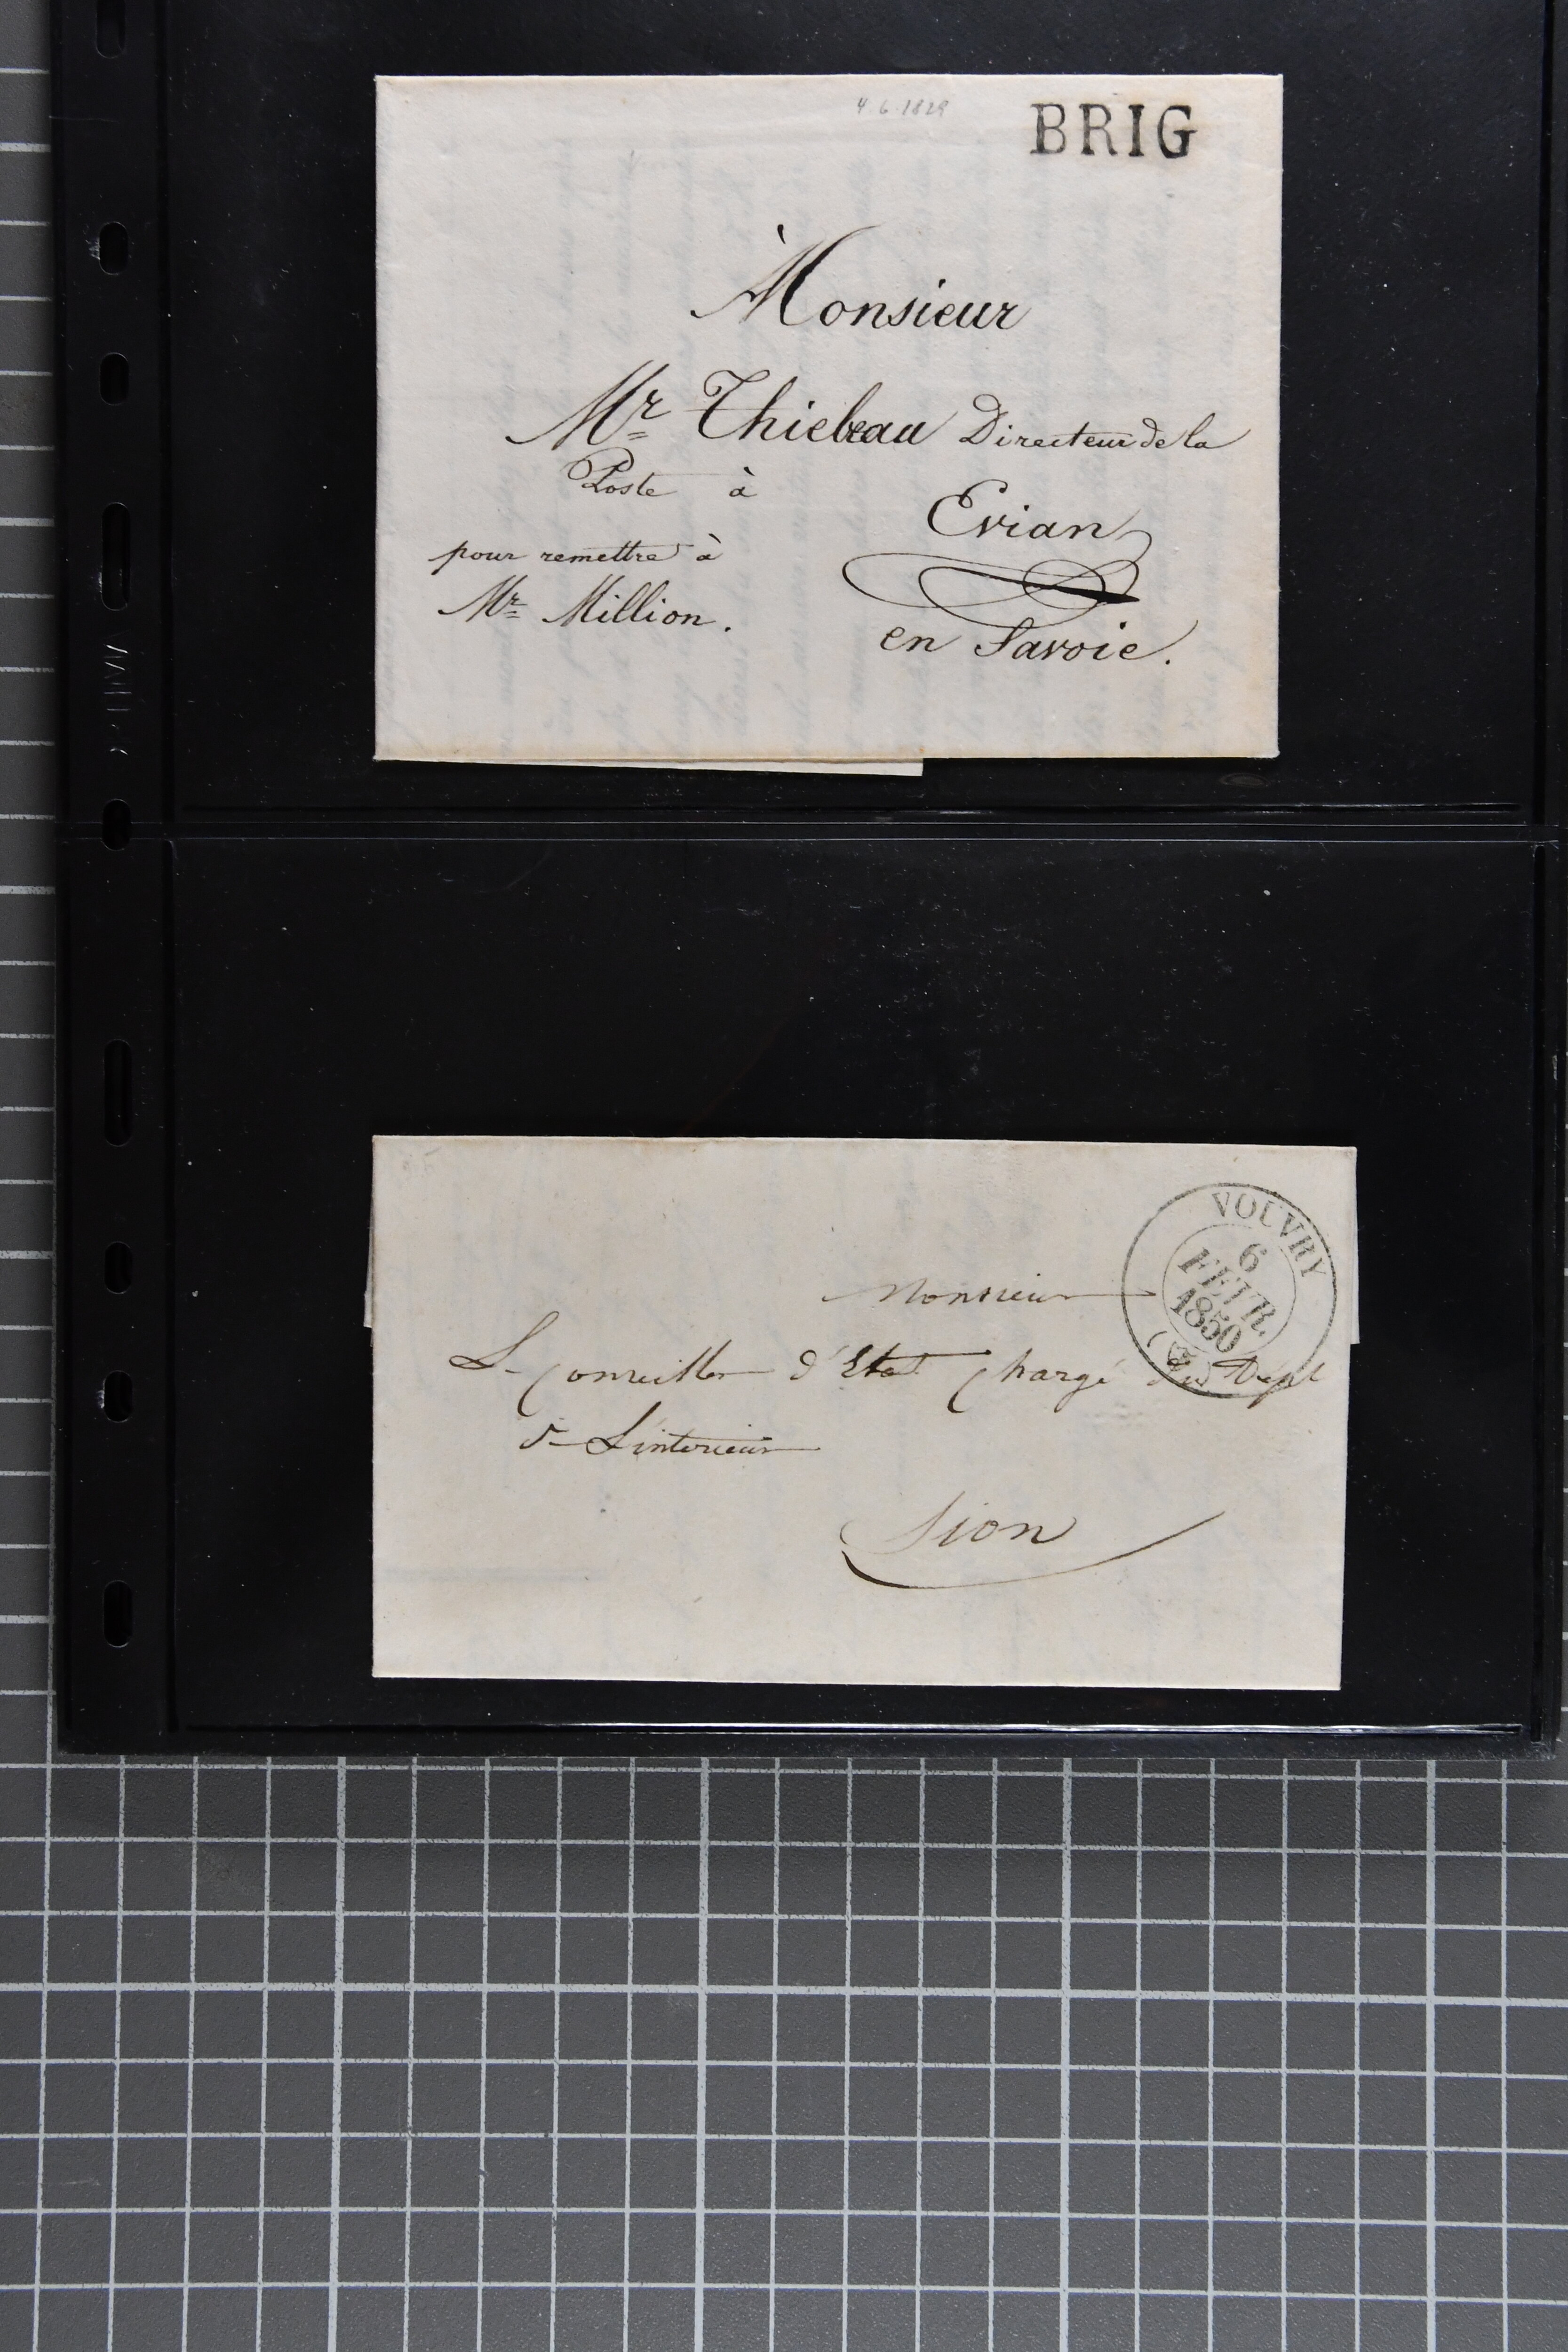 4.6.1829
BRIG
Monsieur
Mr Thiebeau Directeur de la
Poste à
Evian
pour remettre à
Mr Million.
en Savoie.
VOUVRY
6
FEVR.
1850
Monsieur
Le Conseiller d'Etat Chargé du Dépt
de L'interieur
Sion